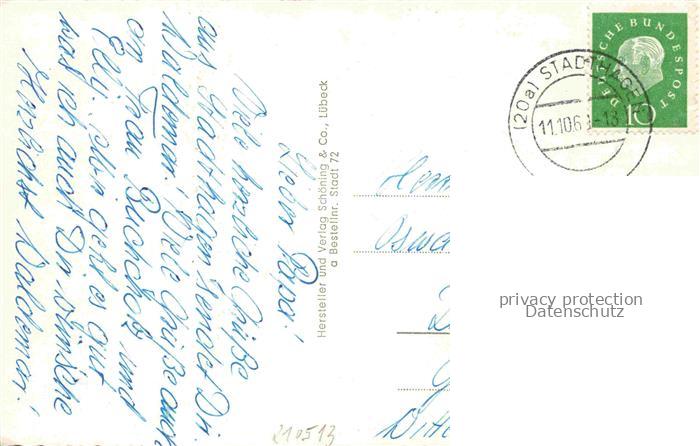 Lieber Papa!
Viele herzliche Grüße
aus Stadthagen sendet Dir
Waldemar! Viele Grüße auch
an Frau Buchholz und
Elly. Uns geht es gut
was ich auch Dir wünsche
Herzlichst Waldemar!
Hersteller und Verlag Schöning & Co., Lübeck
a Bestellnr. Stadt 72
DEUTSCHE BUNDESPOST
10
(20a) STADTHAGEN
11.10.6
-18
Herrn
Oswa
privacy protection
Datenschutz
210513